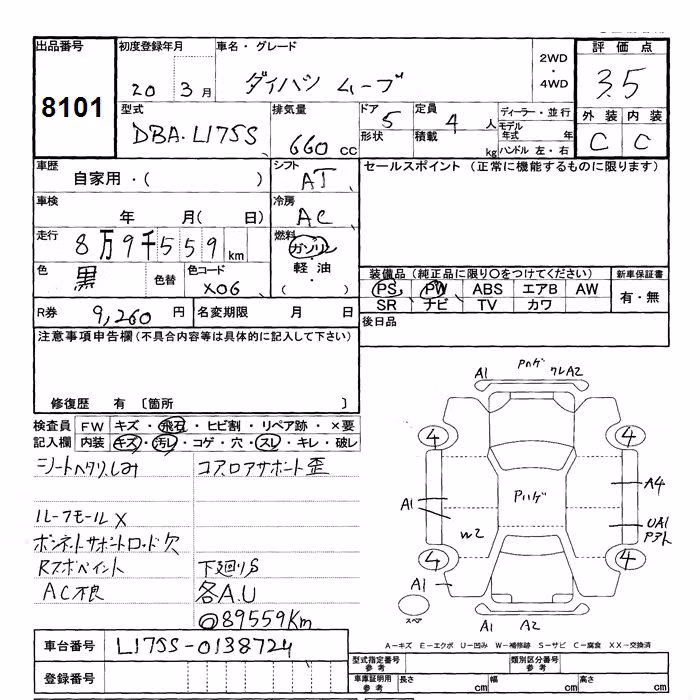 出品番号
8101
初度登録年月
20 3月
車名・グレード
ダイハツ ムーブ
2WD
・
4WD
評価点
3.5
外装 内装
C C
型式
DBA-L175S
排気量
660 cc
ドア
5
形状
定員
4 人
積載
kg
ディーラー・並行
モデル年式 年
ハンドル 左・右
車歴
自家用・( )
シフト
AT
セールスポイント (正常に機能するものに限ります)
車検
年 月( 日)
冷房
AC
走行
8万9千559km
燃料
ガソリン
・
軽油
( )
色
黒
色替
色コード
X06
装備品 (純正品に限り○をつけてください)
PS PW ABS エアB AW
SR ナビ TV カワ
新車保証書
有・無
R券
9,260 円
名変期限 月 日
後日品
注意事項申告欄(不具合内容等は具体的に記入して下さい)
修復歴 有 〔箇所 〕
検査員記入欄
FW キズ・飛石・ヒビ割・リペア跡・×要
内装 キズ・汚レ・コゲ・穴・スレ・キレ・破レ
シートヘタリ、しみ
コアロアサポート歪
ルーフモールX
ボンネットサポートロッド欠
Rスポペイント
下廻りS
AC不良
各A.U
@89559Km
A1
Pハゲ
ワレA2
4
4
Pハゲ
A4
A1
W2
UA1
Pアト
4
4
A1
スペア
A1
A2
A-キズ E-エクボ U-凹み W-補修跡 S-サビ C-腐食 XX-交換済
車台番号
L175S-0138724
登録番号
型式指定番号
参考
類別区分番号
参考
車庫証明用
参考
長さ cm
幅 cm
高さ cm